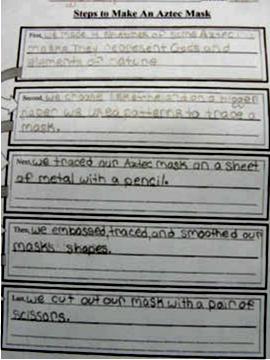 Steps to Make An Aztec Mask
First, we made 4 sketches of some Aztec
masks They represent Gods and
elements of nature
Second, we choose 1 sketch and on a bigger
paper we used patterns to trace a
mask.
Next, we traced our Aztec mask on a sheet
of metal with a pencil.
Then, we embossed, traced, and smoothed our
masks' shapes.
Last, we cut out our mask with a pair of
scissors.